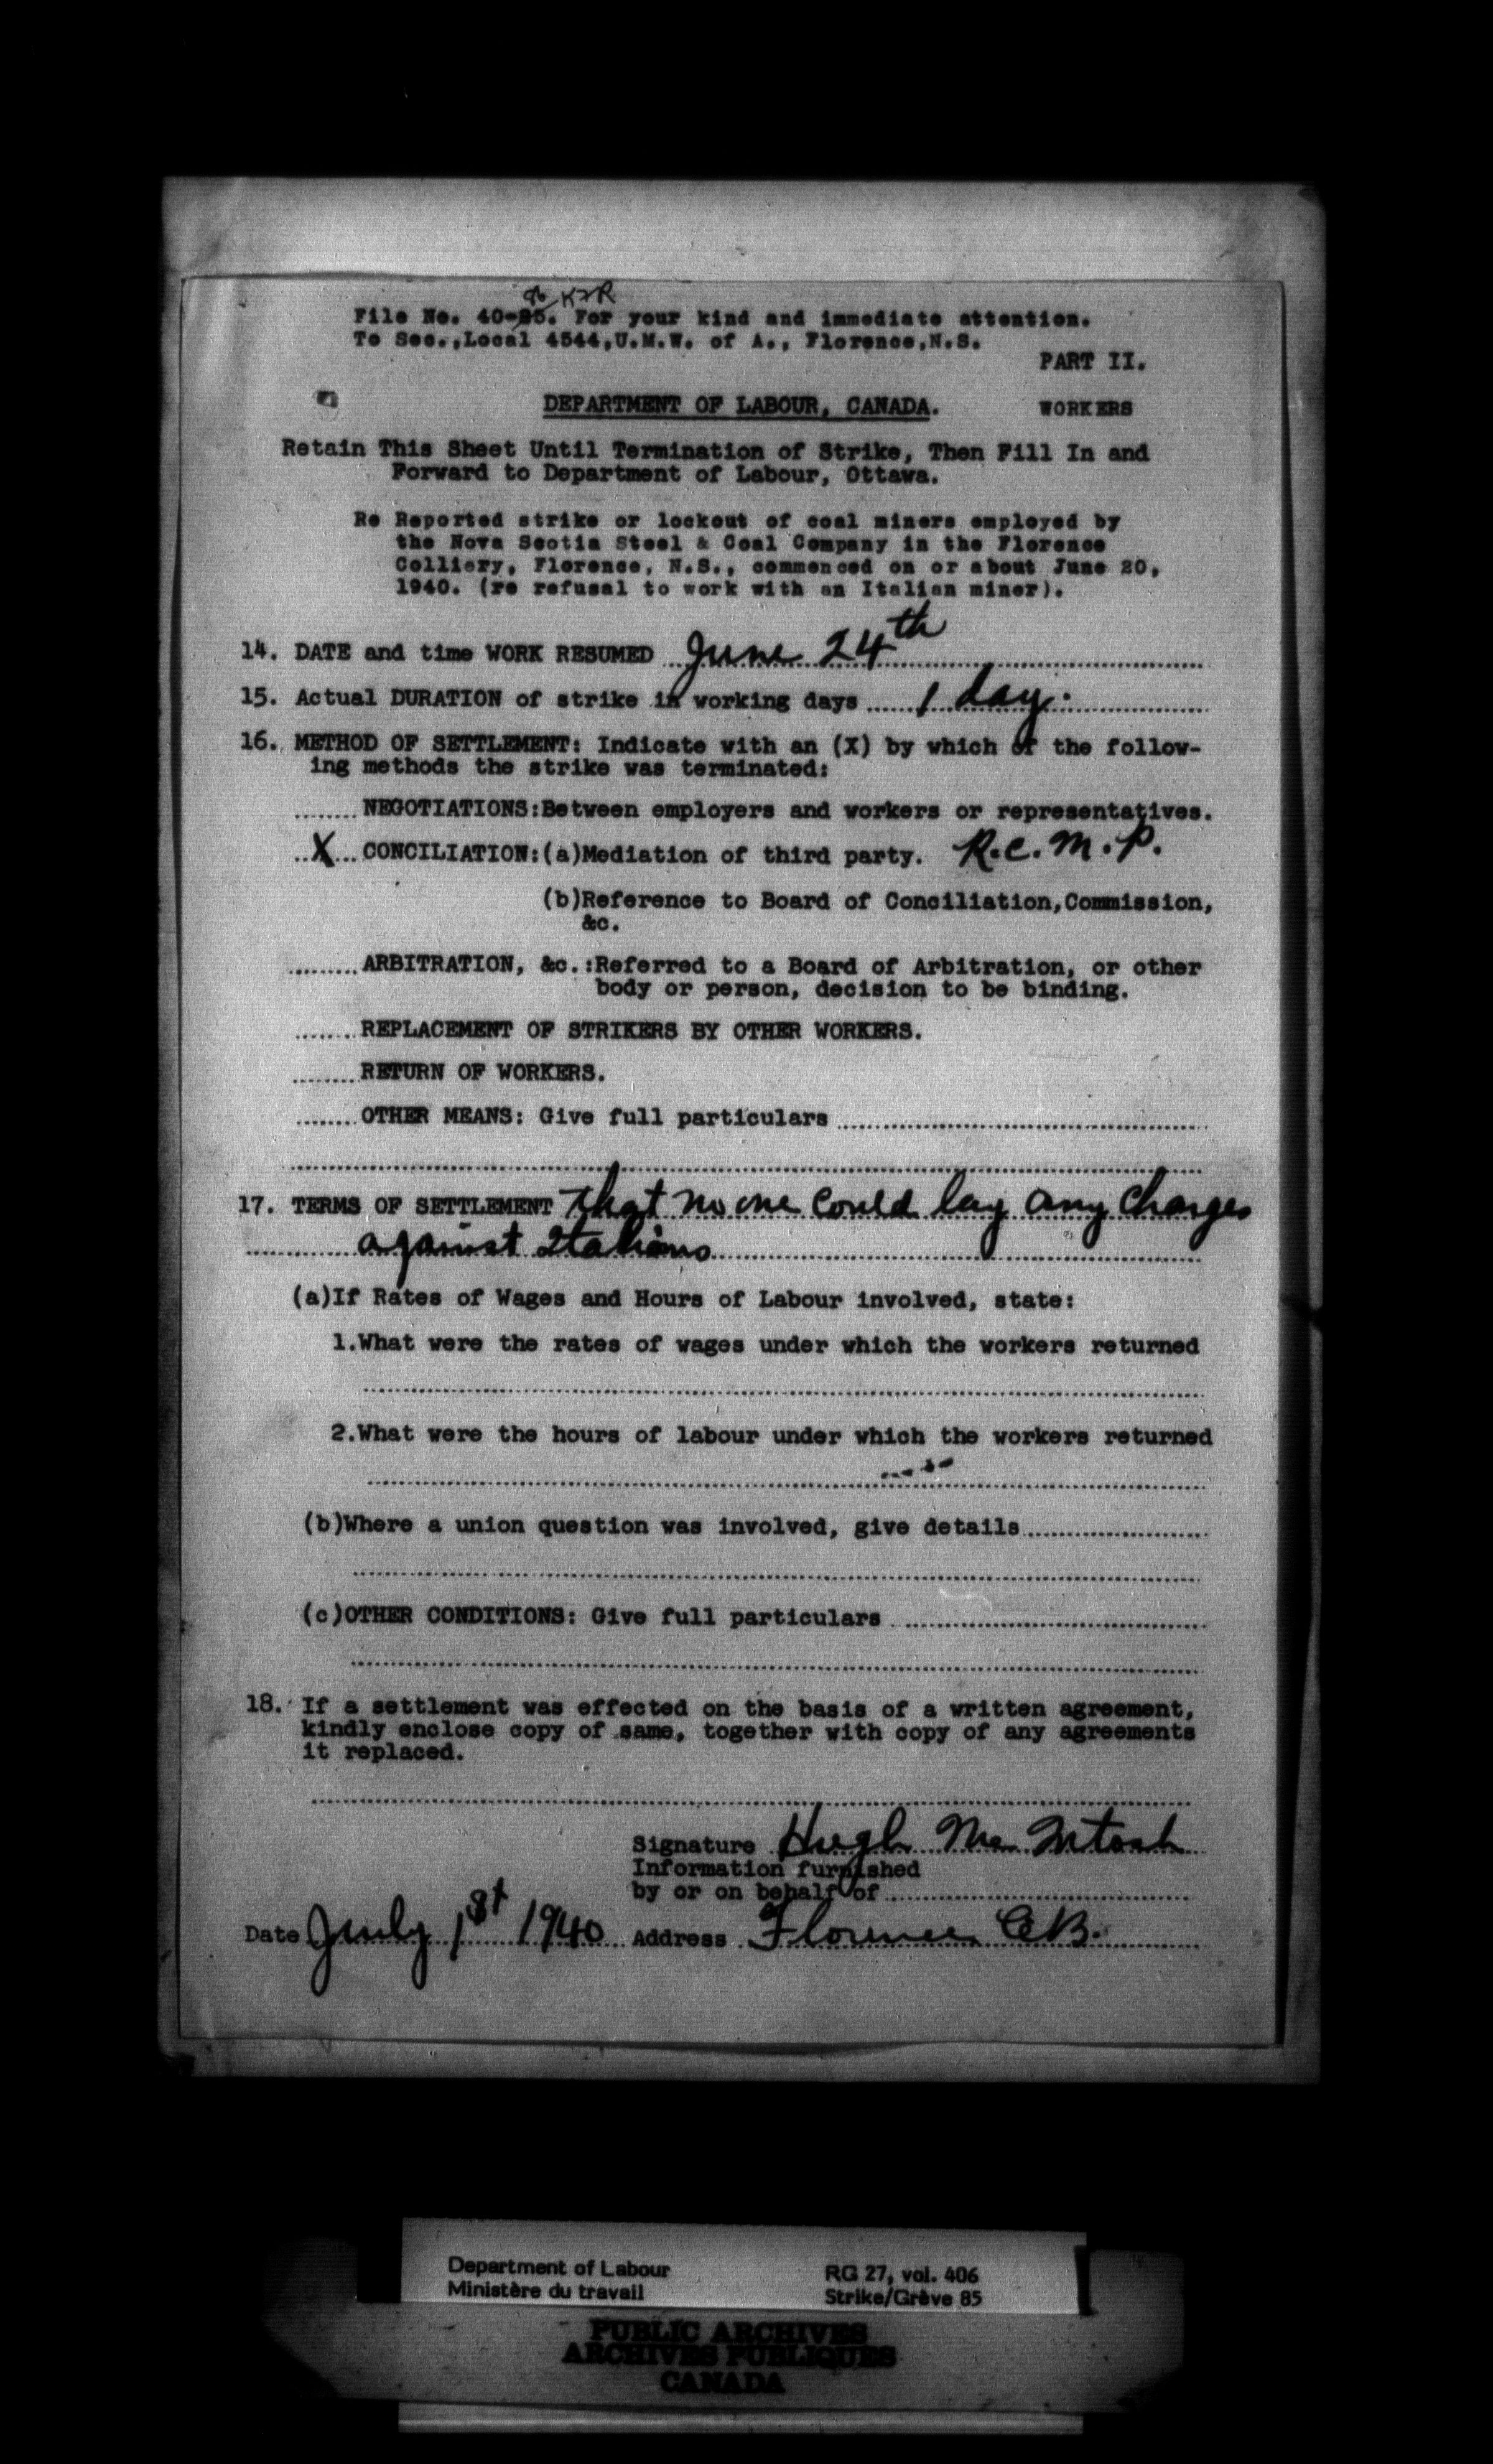 K2R
File No. 40-85. For your kind and immediate attention.
To Sec.,Local 4544,U.M.W. of A., Florence,N.S.
PART II.
DEPARTMENT OF LABOUR, CANADA.
WORKERS
Retain This Sheet Until Termination of Strike, Then Fill In and
Forward to Department of Labour, Ottawa.
Re Reported strike or lockout of coal miners employed by
the Nova Scotia Steel & Coal Company in the Florence
Colliery, Florence, N.S., commenced on or about June 20,
1940. (re refusal to work with an Italian miner).
14. DATE and time WORK RESUMED June 24th
15. Actual DURATION of strike in working days 1 day.
16. METHOD OF SETTLEMENT: Indicate with an (X) by which of the follow-
ing methods the strike was terminated:
........NEGOTIATIONS:Between employers and workers or representatives.
..X...CONCILIATION:(a)Mediation of third party. R.C.M.P.
(b)Reference to Board of Conciliation,Commission,
&c.
.........ARBITRATION, &c.:Referred to a Board of Arbitration, or other
body or person, decision to be binding.
........REPLACEMENT OF STRIKERS BY OTHER WORKERS.
.........RETURN OF WORKERS.
........OTHER MEANS: Give full particulars
17. TERMS OF SETTLEMENT that no one could lay any charges
against Italians
(a)If Rates of Wages and Hours of Labour involved, state:
1.What were the rates of wages under which the workers returned
2.What were the hours of labour under which the workers returned
(b)Where a union question was involved, give details
(c)OTHER CONDITIONS: Give full particulars
18. If a settlement was effected on the basis of a written agreement,
kindly enclose copy of same, together with copy of any agreements
it replaced.
Signature Hugh McIntosh
Information furnished
by or on behalf of
Date July 1st 1940 Address Florence C.B.
Department of Labour
Ministère du travail
RG 27, vol. 406
Strike/Grève 85
PUBLIC ARCHIVES
ARCHIVES PUBLIQUES
CANADA